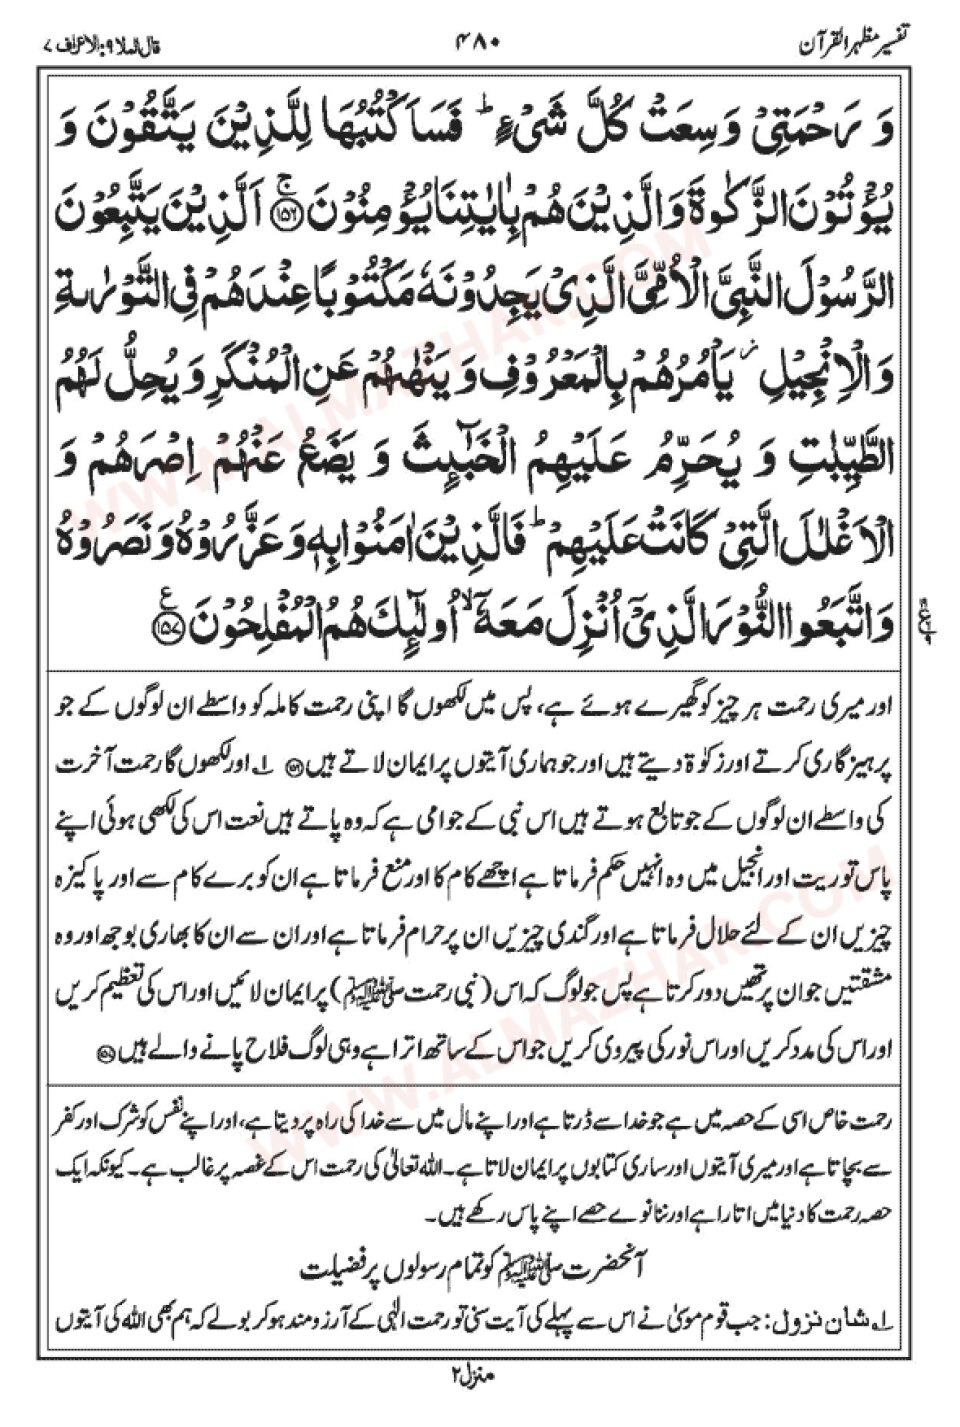 تفسیر مظہر القرآن
۴۸۰
قال الملا ۹: الاعراف ۷
وَ رَحْمَتِیْ وَسِعَتْ كُلَّ شَیْءٍ ؕ فَسَاَكْتُبُهَا لِلَّذِیْنَ یَتَّقُوْنَ وَ
یُؤْتُوْنَ الزَّكٰوةَ وَ الَّذِیْنَ هُمْ بِاٰیٰتِنَا یُؤْمِنُوْنَ ۚ ﴿۱۵۶﴾ اَلَّذِیْنَ یَتَّبِعُوْنَ
الرَّسُوْلَ النَّبِیَّ الْاُمِّیَّ الَّذِیْ یَجِدُوْنَهٗ مَكْتُوْبًا عِنْدَهُمْ فِی التَّوْرٰىةِ
وَ الْاِنْجِیْلِ ۫ یَاْمُرُهُمْ بِالْمَعْرُوْفِ وَ یَنْهٰىهُمْ عَنِ الْمُنْكَرِ وَ یُحِلُّ لَهُمُ
الطَّیِّبٰتِ وَ یُحَرِّمُ عَلَیْهِمُ الْخَبٰٓىِٕثَ وَ یَضَعُ عَنْهُمْ اِصْرَهُمْ وَ
الْاَغْلٰلَ الَّتِیْ كَانَتْ عَلَیْهِمْ ؕ فَالَّذِیْنَ اٰمَنُوْا بِهٖ وَ عَزَّرُوْهُ وَ نَصَرُوْهُ
وَ اتَّبَعُوا النُّوْرَ الَّذِیْۤ اُنْزِلَ مَعَهٗۤ ۙ اُولٰٓىِٕكَ هُمُ الْمُفْلِحُوْنَ ﴿۱۵۷﴾ ع
اور میری رحمت ہر چیز کو گھیرے ہوئے ہے، پس میں لکھوں گا اپنی رحمت کاملہ کو واسطے ان لوگوں کے جو
پرہیزگاری کرتے اور زکوٰۃ دیتے ہیں اور جو ہماری آیتوں پر ایمان لاتے ہیں ﴿۱۵۶﴾ ۱؎ اور لکھوں گا رحمت آخرت
کی واسطے ان لوگوں کے جو تابع ہوتے ہیں اس نبی کے جو امی ہے کہ وہ پاتے ہیں نعت اس کی لکھی ہوئی اپنے
پاس توریت اور انجیل میں وہ انہیں حکم فرماتا ہے اچھے کام کا اور منع فرماتا ہے ان کو برے کام سے اور پاکیزہ
چیزیں ان کے لئے حلال فرماتا ہے اور گندی چیزیں ان پر حرام فرماتا ہے اور ان سے ان کا بھاری بوجھ اور وہ
مشقتیں جو ان پر تھیں دور کرتا ہے پس جو لوگ کہ اس (نبی رحمت ﷺ) پر ایمان لائیں اور اس کی تعظیم کریں
اور اس کی مدد کریں اور اس نور کی پیروی کریں جو اس کے ساتھ اترا ہے وہی لوگ فلاح پانے والے ہیں ﴿۱۵۷﴾
رحمت خاص اسی کے حصہ میں ہے جو خدا سے ڈرتا ہے اور اپنے مال میں سے خدا کی راہ پر دیتا ہے، اور اپنے نفس کو شرک اور کفر
سے بچاتا ہے اور میری آیتوں اور ساری کتابوں پر ایمان لاتا ہے۔ اللہ تعالیٰ کی رحمت اس کے غصہ پر غالب ہے۔ کیونکہ ایک
حصہ رحمت کا دنیا میں اتارا ہے اور ننانوے حصے اپنے پاس رکھے ہیں۔
آنحضرت ﷺ کو تمام رسولوں پر فضیلت
۱؎ شان نزول: جب قوم موسیٰ نے اس سے پہلے کی آیت سنی تو رحمت الٰہی کے آرزومند ہو کر بولے کہ ہم بھی اللہ کی آیتوں
منزل ۲
WWW.ALMAZHAR.COM
WWW.ALMAZHAR.COM